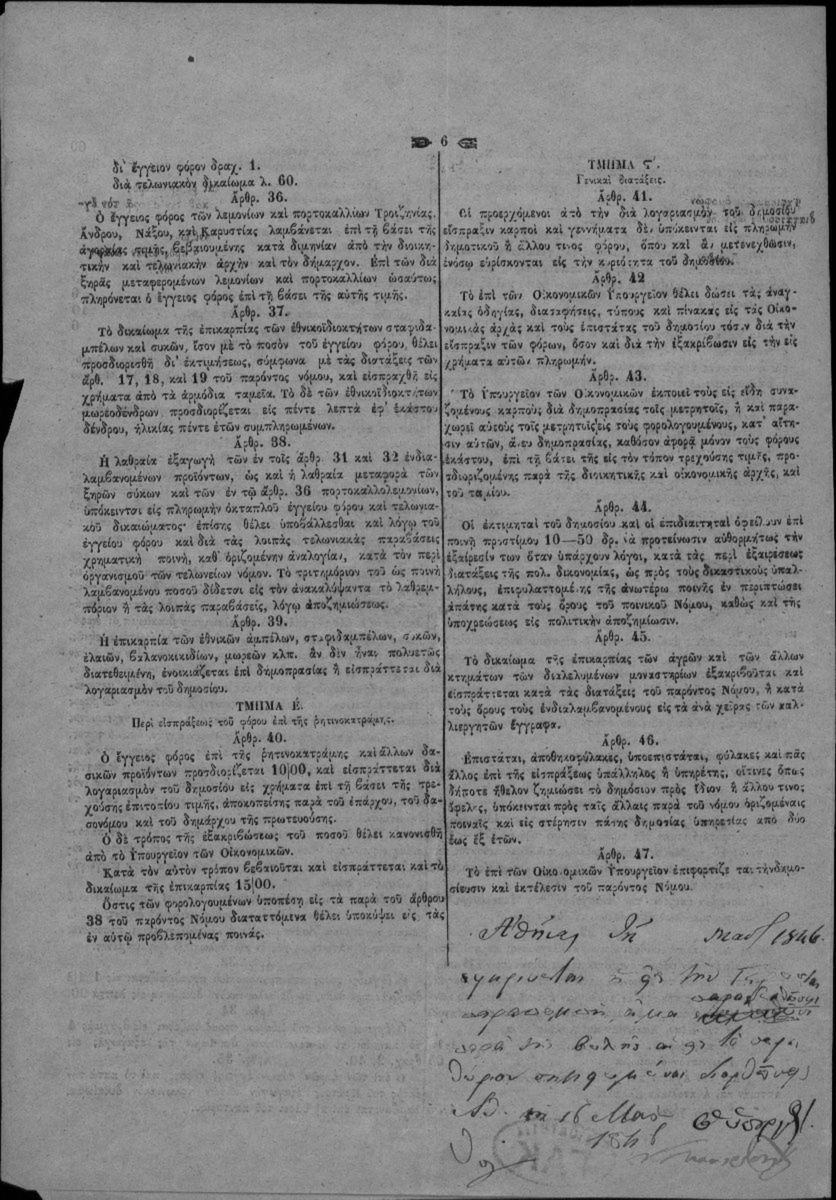 6
δι' ἔγγειον φόρον δραχ. 1.
διὰ τελωνιακὸν δικαίωμα λ. 60.
Ἀρθρ. 36.
Ὁ ἔγγειος φόρος τῶν λεμονίων καὶ πορτοκαλλίων Τροιζηνίας,
Ἄνδρου, Νάξου, καὶ Καρυστίας λαμβάνεται ἐπὶ τῇ βάσει τῆς
ἀγοραίας τιμῆς, βεβαιουμένης κατὰ διμηνίαν ἀπὸ τὴν διοικη-
τικὴν καὶ τελωνιακὴν ἀρχὴν καὶ τὸν δήμαρχον. Ἐπὶ τῶν διὰ
ξηρᾶς μεταφερομένων λεμονίων καὶ πορτοκαλλίων ὡσαύτως
πληρόνεται ὁ ἔγγειος φόρος ἐπὶ τῇ βάσει τῆς αὐτῆς τιμῆς.
Ἀρθρ. 37.
Τὸ δικαίωμα τῆς ἐπικαρπίας τῶν ἐθνικοϊδιοκτήτων σταφιδα-
μπέλων καὶ συκῶν, ἴσον μὲ τὸ ποσὸν τοῦ ἐγγείου φόρου, θέλει
προσδιορισθῆ δι' ἐκτιμήσεως, σύμφωνα μὲ τὰς διατάξεις τῶν
ἄρθ. 17, 18, καὶ 19 τοῦ παρόντος νόμου, καὶ εἰσπραχθῆ εἰς
χρήματα ἀπὸ τὰ ἁρμόδια ταμεῖα. Τὸ δὲ τῶν ἐθνικοϊδιοκτήτων
μωρεοδένδρων προσδιορίζεται εἰς πέντε λεπτὰ ἐφ' ἑκάστου
δένδρου, ἡλικίας πέντε ἐτῶν συμπληρωμένων.
Ἀρθρ. 38.
Ἡ λαθραία ἐξαγωγὴ τῶν ἐν τοῖς ἄρθρ. 31 καὶ 32 ἐνδια-
λαμβανομένων προϊόντων, ὡς καὶ ἡ λαθραία μεταφορὰ τῶν
ξηρῶν σύκων καὶ τῶν ἐν τῷ ἄρθρ. 36 πορτοκαλλολεμονίων,
ὑπόκεινται εἰς πληρωμὴν ὀκταπλοῦ ἐγγείου φόρου καὶ τελωνια-
κοῦ δικαιώματος· ἐπίσης θέλει ὑποβάλλεσθαι καὶ λόγῳ τοῦ
ἐγγείου φόρου καὶ διὰ τὰς λοιπὰς τελωνιακὰς παραβάσεις
χρηματικὴ ποινὴ, καθ' ὁριζομένην ἀναλογίαν, κατὰ τὸν περὶ
ὀργανισμοῦ τῶν τελωνείων νόμον. Τὸ τριτημόριον τοῦ ὡς ποινὴ
λαμβανομένου ποσοῦ δίδεται εἰς τὸν ἀνακαλύψαντα τὸ λαθρεμ-
πόριον ἢ τὰς λοιπὰς παραβάσεις, λόγῳ ἀποζημιώσεως.
Ἀρθρ. 39.
Ἡ ἐπικαρπία τῶν ἐθνικῶν ἀμπέλων, σταφιδαμπέλων, συκῶν,
ἐλαιῶν, βαλανοκικιδίων, μωρεῶν κλπ. ἂν δὲν ἦναι πολυετῶς
διατεθειμένη, ἐνοικιάζεται ἐπὶ δημοπρασίας ἢ εἰσπράττεται διὰ
λογαριασμὸν τοῦ δημοσίου.
ΤΜΗΜΑ Ε.
Περὶ εἰσπράξεως τοῦ φόρου ἐπὶ τῆς ῥητινοκατράμης.
Ἀρθρ. 40.
Ὁ ἔγγειος φόρος ἐπὶ τῆς ῥητινοκατράμης καὶ ἄλλων δα-
σικῶν προϊόντων προσδιορίζεται 10|00, καὶ εἰσπράττεται διὰ
λογαριασμὸν τοῦ δημοσίου εἰς χρήματα ἐπὶ τῇ βάσει τῆς τρε-
χούσης ἐπιτοπίου τιμῆς, ἀποκοπείσης παρὰ τοῦ ἐπάρχου, τοῦ δα-
σονόμου καὶ τοῦ δημάρχου τῆς πρωτευούσης.
Ὁ δὲ τρόπος τῆς ἐξακριβώσεως τοῦ ποσοῦ θέλει κανονισθῆ
ἀπὸ τὸ Ὑπουργεῖον τῶν Οἰκονομικῶν.
Κατὰ τὸν αὐτὸν τρόπον βεβαιοῦται καὶ εἰσπράττεται καὶ τὸ
δικαίωμα τῆς ἐπικαρπίας 15|00.
Ὅστις τῶν φορολογουμένων ὑποπέσῃ εἰς τὰ παρὰ τοῦ ἄρθρου
38 τοῦ παρόντος Νόμου διαταττόμενα θέλει ὑποκύψει εἰς τὰς
ἐν αὐτῷ προβλεπομένας ποινάς.
ΤΜΗΜΑ Ϛ'.
Γενικαὶ διατάξεις.
Ἀρθρ. 41.
Οἱ προερχόμενοι ἀπὸ τὴν διὰ λογαριασμὸν τοῦ δημοσίου
εἴσπραξιν καρποὶ καὶ γεννήματα δὲν ὑπόκεινται εἰς πληρωμὴν
δημοτικοῦ ἢ ἄλλου τινος φόρου, ὅπου καὶ ἂν μετενεχθῶσιν,
ἐνόσῳ εὑρίσκονται εἰς τὴν κυριότητα τοῦ δημοσίου.
Ἀρθρ. 42
Τὸ ἐπὶ τῶν Οἰκονομικῶν Ὑπουργεῖον θέλει δώσει τὰς ἀναγ-
καίας ὁδηγίας, διασαφήσεις, τύπους καὶ πίνακας εἰς τὰς Οἰκο-
νομικὰς ἀρχὰς καὶ τοὺς ἐπιστάτας τοῦ δημοσίου τόσον διὰ τὴν
εἴσπραξιν τῶν φόρων, ὅσον καὶ διὰ τὴν ἐξακρίβωσιν εἰς τὴν εἰς
χρήματα αὐτῶν πληρωμήν.
Ἀρθρ. 43.
Τὸ Ὑπουργεῖον τῶν Οἰκονομικῶν ἐκποιεῖ τοὺς εἰς εἴδη συνα-
ζομένους καρποὺς διὰ δημοπρασίας τοῖς μετρητοῖς, ἢ καὶ παρα-
χωρεῖ αὐτοὺς τοῖς μετρητοῖς εἰς τοὺς φορολογουμένους, κατ' αἴτη-
σιν αὐτῶν, ἄνευ δημοπρασίας, καθόσον ἀφορᾷ μόνον τοὺς φόρους
ἑκάστου, ἐπὶ τῇ βάσει τῆς εἰς τὸν τόπον τρεχούσης τιμῆς, προσ-
διοριζομένης παρὰ τῆς διοικητικῆς καὶ οἰκονομικῆς ἀρχῆς, καὶ
τοῦ ταμίου.
Ἀρθρ. 44.
Οἱ ἐκτιμηταὶ τοῦ δημοσίου καὶ οἱ ἐπιδιαιτηταὶ ὀφείλουν ἐπὶ
ποινῇ προστίμου 10—50 δρ. νὰ προτείνωσιν αὐθορμήτως τὴν
ἐξαίρεσίν των ὅταν ὑπάρχουν λόγοι, κατὰ τὰς περὶ ἐξαιρέσεως
διατάξεις τῆς πολ. δικονομίας, ὡς πρὸς τοὺς δικαστικοὺς ὑπαλ-
λήλους, ἐπιφυλαττομένης τῆς ἀνωτέρω ποινῆς ἐν περιπτώσει
ἀπάτης κατὰ τοὺς ὅρους τοῦ ποινικοῦ Νόμου, καθὼς καὶ τῆς
ὑποχρεώσεως εἰς πολιτικὴν ἀποζημίωσιν.
Ἀρθρ. 45.
Τὸ δικαίωμα τῆς ἐπικαρπίας τῶν ἀγρῶν καὶ τῶν ἄλλων
κτημάτων τῶν διαλελυμένων μοναστηρίων ἐξακριβοῦται καὶ
εἰσπράττεται κατὰ τὰς διατάξεις τοῦ παρόντος Νόμου, ἢ κατὰ
τοὺς ὅρους τοὺς ἐνδιαλαμβανομένους εἰς τὰ ἀνὰ χεῖρας τῶν καλ-
λιεργητῶν ἔγγραφα.
Ἀρθρ. 46.
Ἐπιστάται, ἀποθηκοφύλακες, ὑποεπιστάται, φύλακες καὶ πᾶς
ἄλλος ἐπὶ τῆς εἰσπράξεως ὑπάλληλος ἢ ὑπηρέτης, οἵτινες ὅπως
δήποτε ἤθελον ζημιώσει τὸ δημόσιον πρὸς ἴδιον ἢ ἄλλου τινος
ὄφελος, ὑπόκεινται πρὸς ταῖς ἄλλαις παρὰ τοῦ νόμου ὁριζομέναις
ποιναῖς καὶ εἰς στέρησιν πάσης δημοσίας ὑπηρεσίας ἀπὸ δύο
ἕως ἓξ ἐτῶν.
Ἀρθρ. 47.
Τὸ ἐπὶ τῶν Οἰκονομικῶν Ὑπουργεῖον ἐπιφορτίζεται τὴν δημο-
σίευσιν καὶ ἐκτέλεσιν τοῦ παρόντος Νόμου.
Ἀθήνας τῇ 1846
παρὰ τῆς βουλῆς
Ἀθ. τῇ 16 Μαΐ
1846